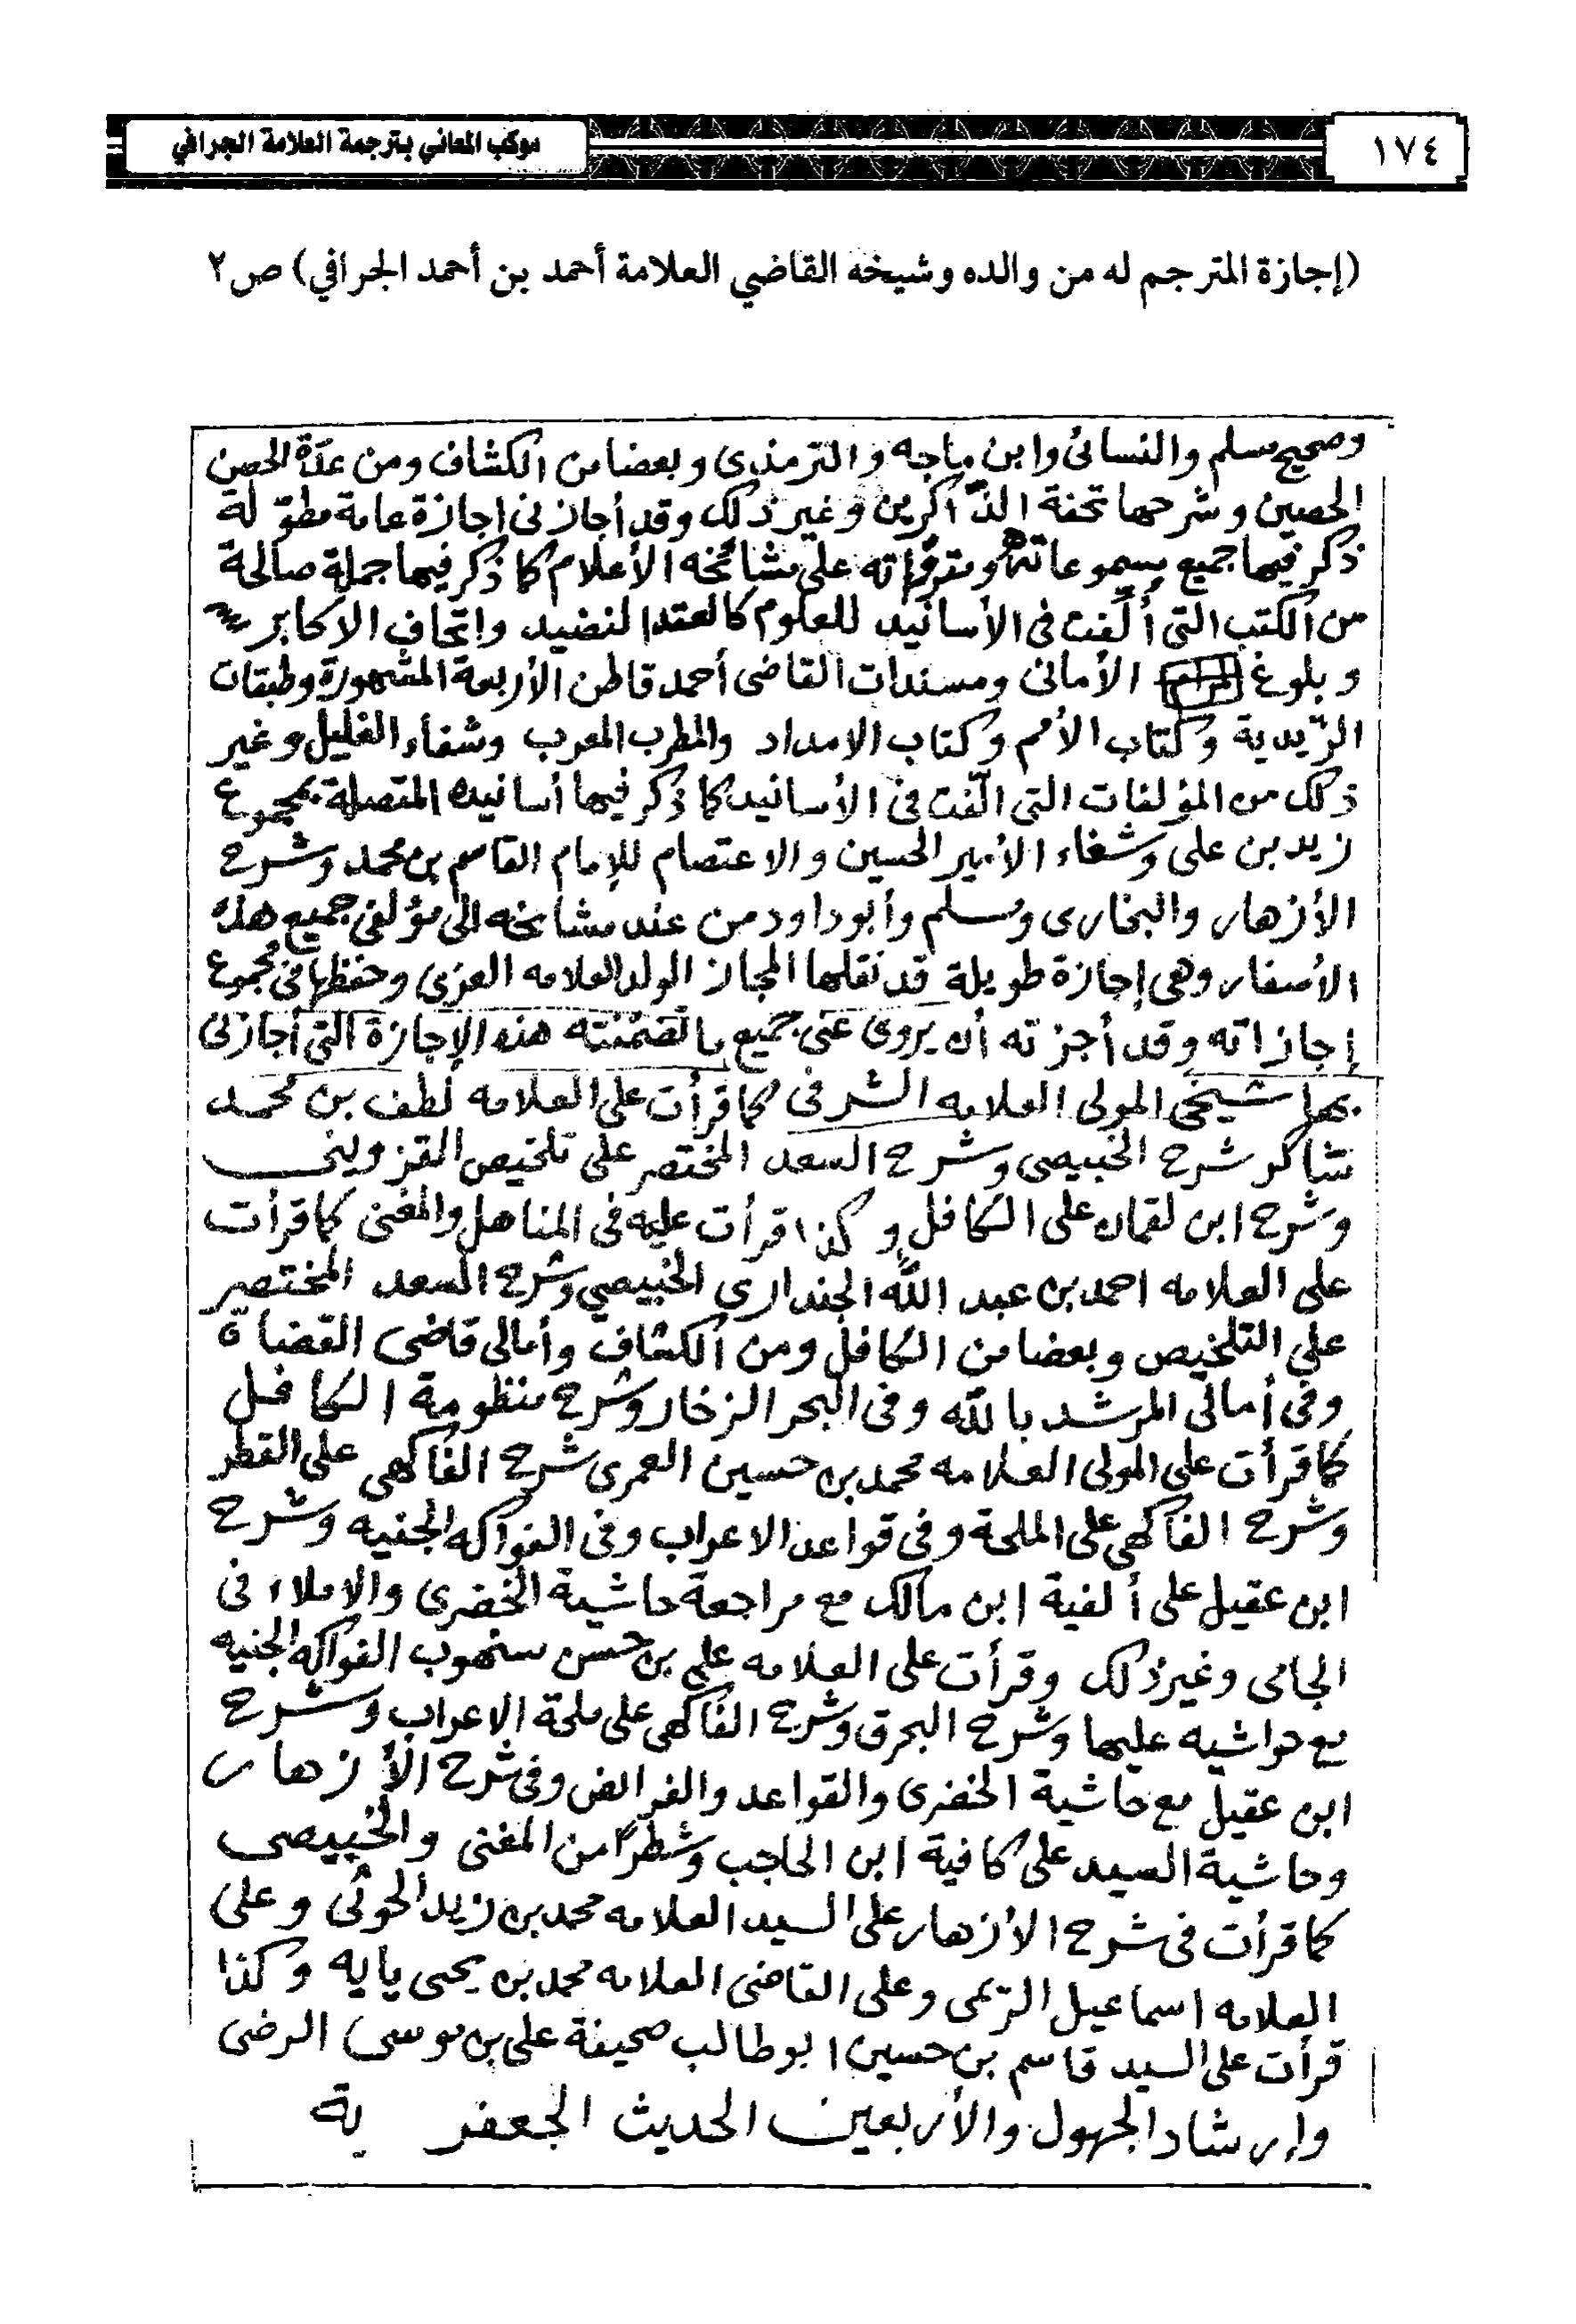 ١٧٤
موكب المعاني بترجمة العلامة الجرافي
(إجازة المترجم له من والده وشيخه القاضي العلامة أحمد بن أحمد الجرافي) ص٢
وصحيح مسلم والنسائى وابن ماجه والترمذى وبعضا من الكشاف ومن عدّة الحصن
الحصين وشرحها تحفة الذّاكرين وغير ذلك وقد أجازنى اجازة عامة مطوّلة
ذكر فيها جميع مسموعاته ومقروّاته على مشائخه الأعلام كما ذكر فيها جملة صالحة
من الكتب التى أُلّفت فى الأسانيد للعلوم كالعقد النضيد واتحاف الاكابر
وبلوغ الأمانى ومسندات القاضى أحمد قاطن الأربعة المشهورة وطبقات
الزّيدية وكتاب الأمم وكتاب الامداد والمطرب المعرب وشفاء الغليل وغير
ذلك من المؤلفات التى الّفت فى الأسانيد كما ذكر فيها أسانيده المتصلة بمجموع
زيد بن على وشفاء الأمير الحسين والاعتصام للإمام القاسم بن محمد وشرح
الأزهار والبخارى ومسلم وأبوداود من عند مشائخه الى مؤلفى جميع هذه
الأسفار وهى إجازة طويلة قد نقلها المجاز الولد العلامه العزى وحفظها فى مجموع
إجازاته وقد أجزته أن يروى عنى جميع ما تضمّنته هذه الإجازة التى أجازنى
بها شيخى المولى العلامه الشرفى كما قرأت على العلامه لطف بن محمد
شاكر شرح الخبيصى وشرح السعد المختصر على تلخيص القزوينى
وشرح ابن لقمان على الكافل وكذا قرأت عليه فى المناهل والمغنى كما قرأت
على العلامه احمد بن عبد الله الجندارى الخبيصي وشرح السعد المختصر
على التلخيص وبعضا من الكافل ومن الكشاف وأمالى قاضى القضاة
وفى أمالى المرشد بالله وفى البحر الزخار وشرح منظومة الكافل
كما قرأت على المولى العلامه محمد بن حسين العمرى شرح الفاكهى على القطر
وشرح الفاكهى على الملحة وفى قواعد الاعراب وفى الفواكه الجنيه وشرح
ابن عقيل على ألفية ابن مالك مع مراجعة حاشية الخضرى والاملاء فى
الجامى وغير ذلك وقرأت على العلامه على بن حسن سنهوب الفواكه الجنيه
مع حواشيه عليها وشرح البحرق وشرح الفاكهى على ملحة الاعراب وشرح
ابن عقيل مع حاشية الخضرى والقواعد والفرائض وفى شرح الأزهار
وحاشية السيد على كافية ابن الحاجب وشطرًا من المغنى والخبيصى
كما قرأت فى شرح الأزهار على السيد العلامه محمد بن زيد الحوثى وعلى
العلامه اسماعيل الرّيمى وعلى القاضى العلامه محمد بن يحيى يايه وكذا
قرأت على السيد قاسم بن حسين ابوطالب صحيفة على بن موسى الرضى
وإرشاد الجهول والأربعين الحديث الجعفرية